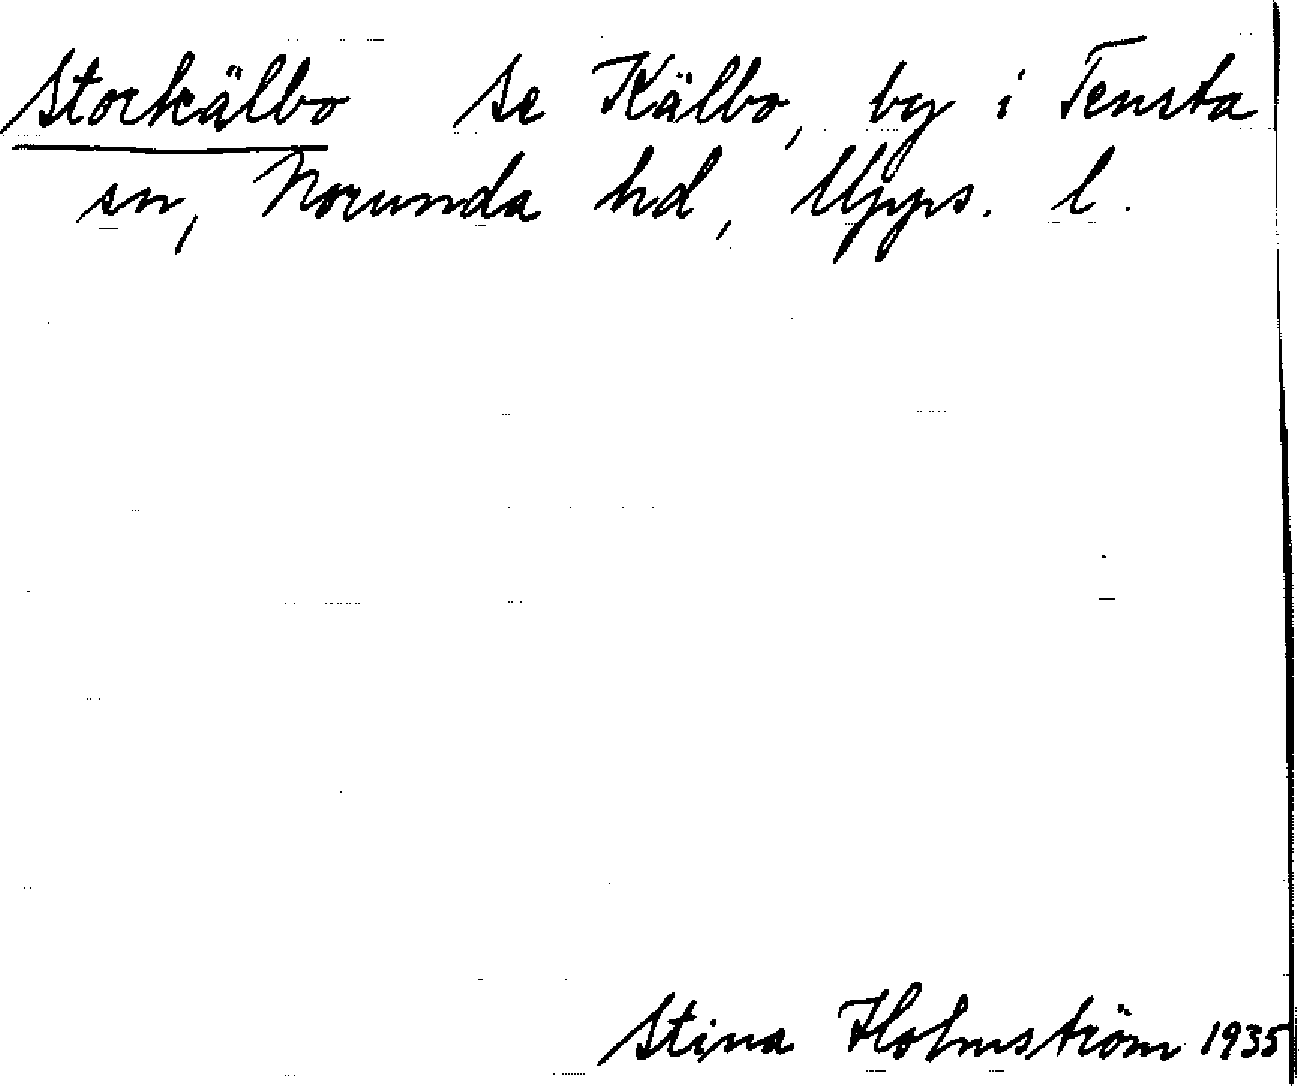 Storkälbo se Kälbo, by i Tensta
sn, Norunda hd, Upps. l.
Stina Holmström 1935